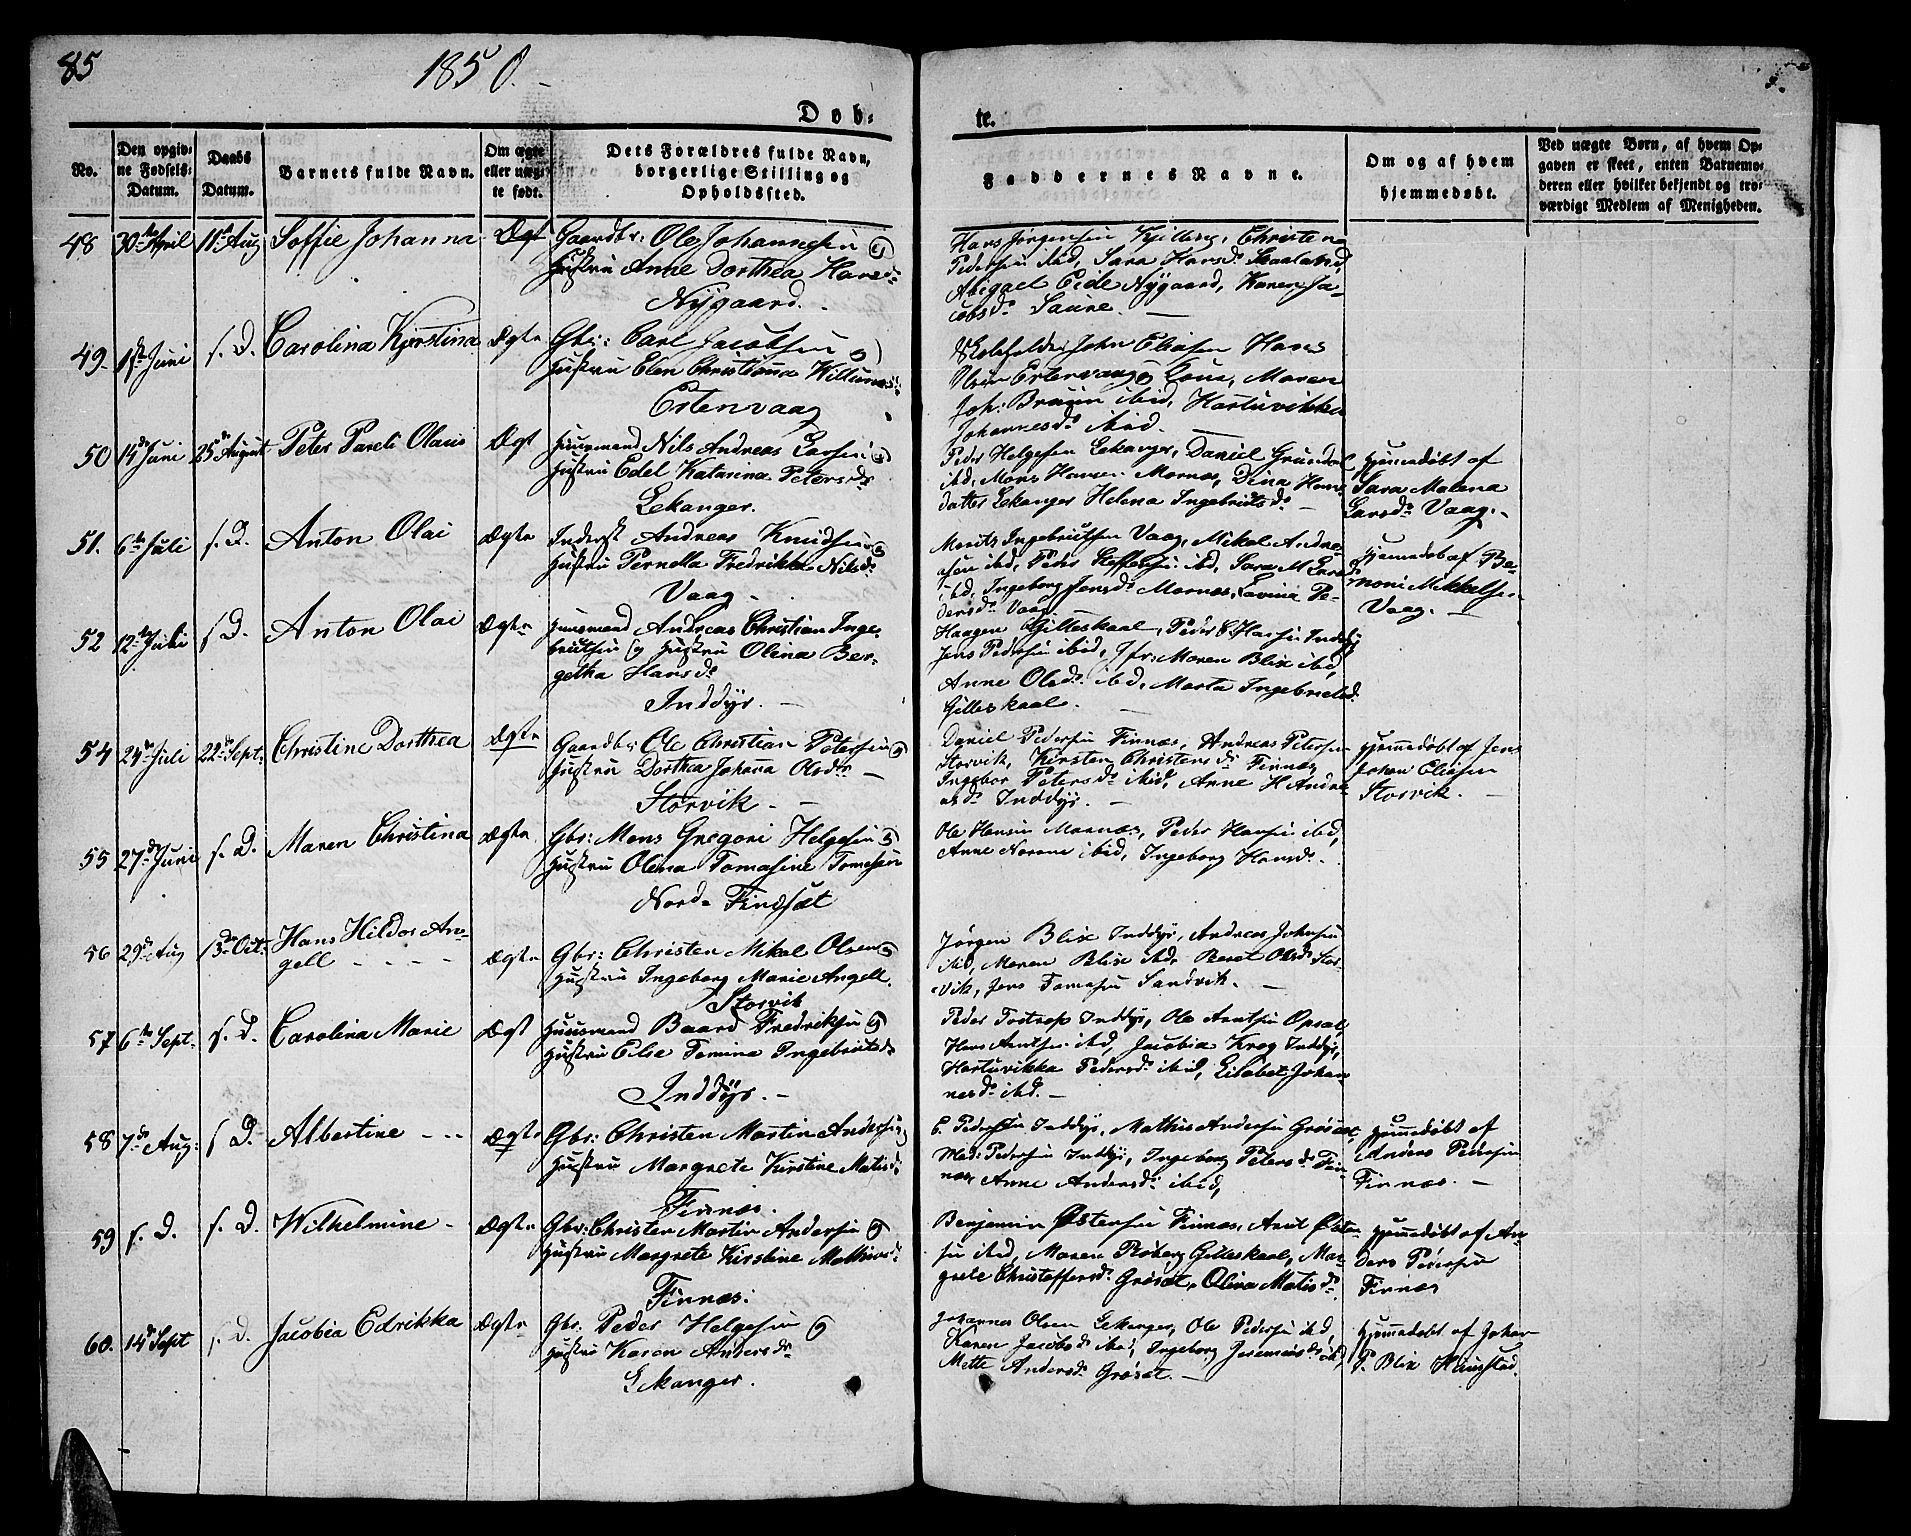 85
1850.
Døb-
te.
No.
Den opgiv-
ne Fødsels-
Datum.
Daabs
Datum.
Barnets fulde Navn.
Om ægte
eller uægte
te født.
Dets Forældres fulde Navn,
borgerlige Stilling og
Opholdssted.
Faddernes Navne.
Om og af hvem
hjemmedøbt.
Ved uægte Børn, af hvem Op-
gaven er skeet, enten Barnemo-
deren eller hvilket bekjendt og tro-
værdigt Medlem af Menigheden.
48 30te April 11te Aug Soffie Johanna Ægt Gaardbr: Ole Johannesen og
Hustru Anne Dorthea Hansd.
Nygaard. -
Hans Jørgensen Kjelling, Christen
Pedersen ibid, Sara Hansd. Skaaland,
Abigael Eide Nygaard, Karen Ja-
cobsd. Saure. -
49. 1ste Juni s. D. Carolina Kjerstina Ægte Gbr: Carl Jacobsen og
Hustru Elen Christianna Willumsd:
Estenvaag
John Eliasen Hans
Olsen Estenvaag, Maren
Joh: Bruun ibid, Hartvikka
Johannesd. ibid. -
50 14de Juni 25de August Peter Pareli Olaus Ægt Huusmand Nils Andreas Larsen og
Hustru Edel Katarina Petersd.
Lekanger.
Peder Helgesen Lekanger, Daniel Grundal
ibid, Mons Hansen Mornæs, Dina Hans-
datter Lekanger Helena Ingebrigtsd. -
Hjemmedøbt af
Sara Malena
Larsd. Vaag. -
51. 6te Juli s. D. Anton Olai Ægte Inderst Andreas Knudsen og
Hustru Pernella Fredrikka Nilsd.
Vaag -
Morits Ingebrigtsen Vaag, Mikal Andrea-
sen ibid, Peder Steffensen ibid, Sara M Larsd.
ibid, Ingeborg Jensd. Mornæs, Lavina Pe-
dersd. Vaag.
Hjemmedøb af Be-
moni Mikkelsen
Vaag. -
52 12te Juli s D. Anton Olai Ægte Huusmand Andreas Christian Inge-
brigtsen og Hustru Olina Ber-
getha Hansd.
Inddyr. -
Haagen Gilleskaal, Peder C. Hansen Inddyr
Jens Pedersen ibid, Jfr: Maren Blix ibid,
Anne Olsd. ibid, Marta Ingebrigtsd.
Gilleskaal.
54 24de Juli 22de Sept: Christine Dorthea Ægte Gaardbr: Ole Christian Petersen og
Hustru Dorthea Johanna Olsd. -
Storvik. -
Daniel Pedersen Finnæs, Andreas Petersen
Storvik, Kirsten Christensd. Finnæs,
Ingebor Petersd. ibid, Anne H Andre-
asd. Inddyr. -
Hjemmedøbt af Jens
Johan Eliasen
Storvik. -
55 27de Juni s. D. Maren Christina Ægte Gbr: Mons Gregori Helgesen og
Hustru Olena Tomasine Tomesen
Nord- Findsæt
Ole Hansen Mornæs, Peder Hansen ibid,
Anne Norone ibid, Ingeborg Hansd. -
56 29de Aug 13de Oct: Hans Hildor An-
gell - - - -
Ægte Gbr: Christen Mikal Olsen og
Hustru Ingeborg Marie Angell.
Storvik
Jørgen Blix Inddyr, Andreas Johnsen
ibid, Maren Blix ibid, Beret Olsd. Stor-
vik, Jens Tomesen Sandvik. -
57 6te Sept: s. D. Carolina Marie Ægt Huusmand Baard Fredriksen og
Hustru Else Tomina Ingebrigtsd.
Inddyr. -
Peder Tostrop Inddyr, Ole Arntsen Opsal,
Hans Arntsen ibid, Jacobia Krog Inddyr,
Hartvikka Pedersd. ibid, Elisabet Johan-
nesd. ibid. -
58 7de Aug: s D. Albertine - - - Ægte Gbr: Christen Martin Andersen og
Hustru Margrete Kirstine Matisd.
Finnæs. -
C. Pedersen Inddyr, Mathis Andersen Grøsæt,
Mad: Pedersen Inddyr, Ingeborg Petersd. Fin-
næs, Anne Andersd. ibid,
Hjemmedøbt af
Anders Pedersen
Finnæs. -
59 s. D. s. D. Wilhelmine - Ægte Gbr: Christen Martin Andersen og
Hustru Margrete Kirstine Mathisd.
Finnæs.
Benjamin Østensen Finnæs, Arnt Østen-
sen ibid, Maren Roberg Gilleskaal, Mar-
grete Christoffersd. Grøsæt, Olina Matisd.
Hjemmedøbt af An-
ders Pedersen
Finnæs
60. 14de Sept s. D. Jacobia Edrikka Ægte Gbr. Peder Helgesen og
Hustru Karen Andersd.
Lekanger.
Johannes Olsen Lekanger, Ole Pedersen ibid,
Karen Jacobsd. ibid, Ingeborg Jeremiasd. ibid,
Mette Andersd. Grøsæt. -
Hjemmedøbt af Johan
P. Blix Haugstad.